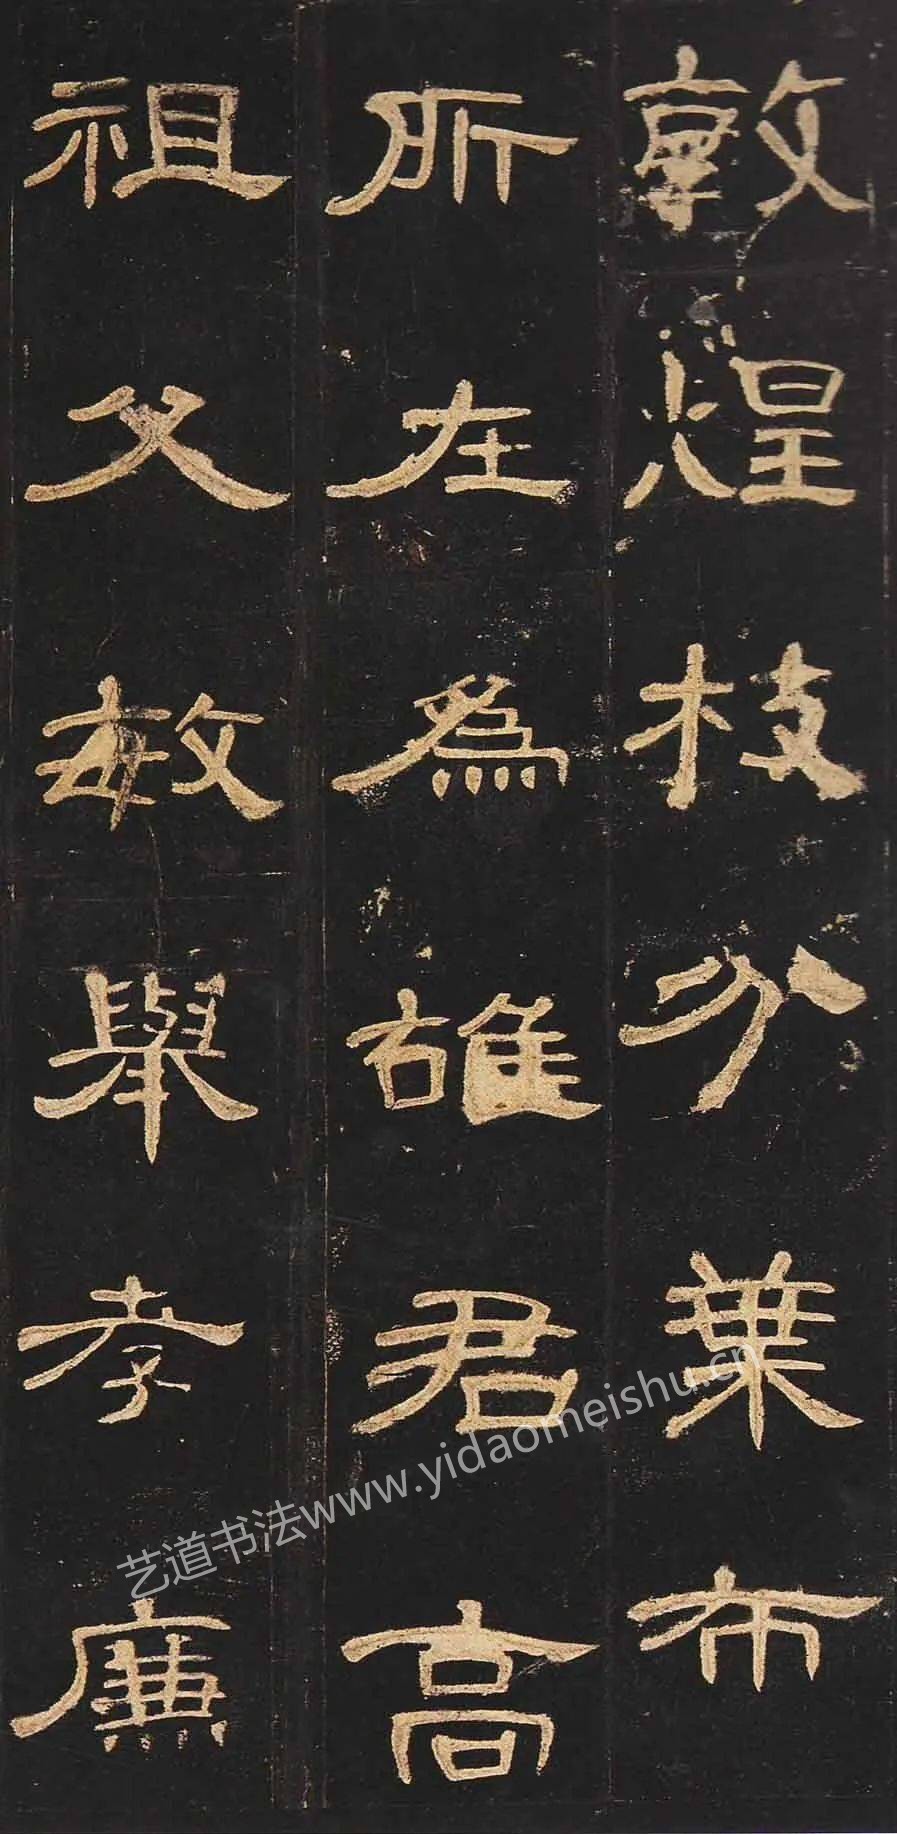 敦煌枝分葉布
所在為雄君高
祖父敏舉孝廉
艺道书法www.yidaomeishu.cn